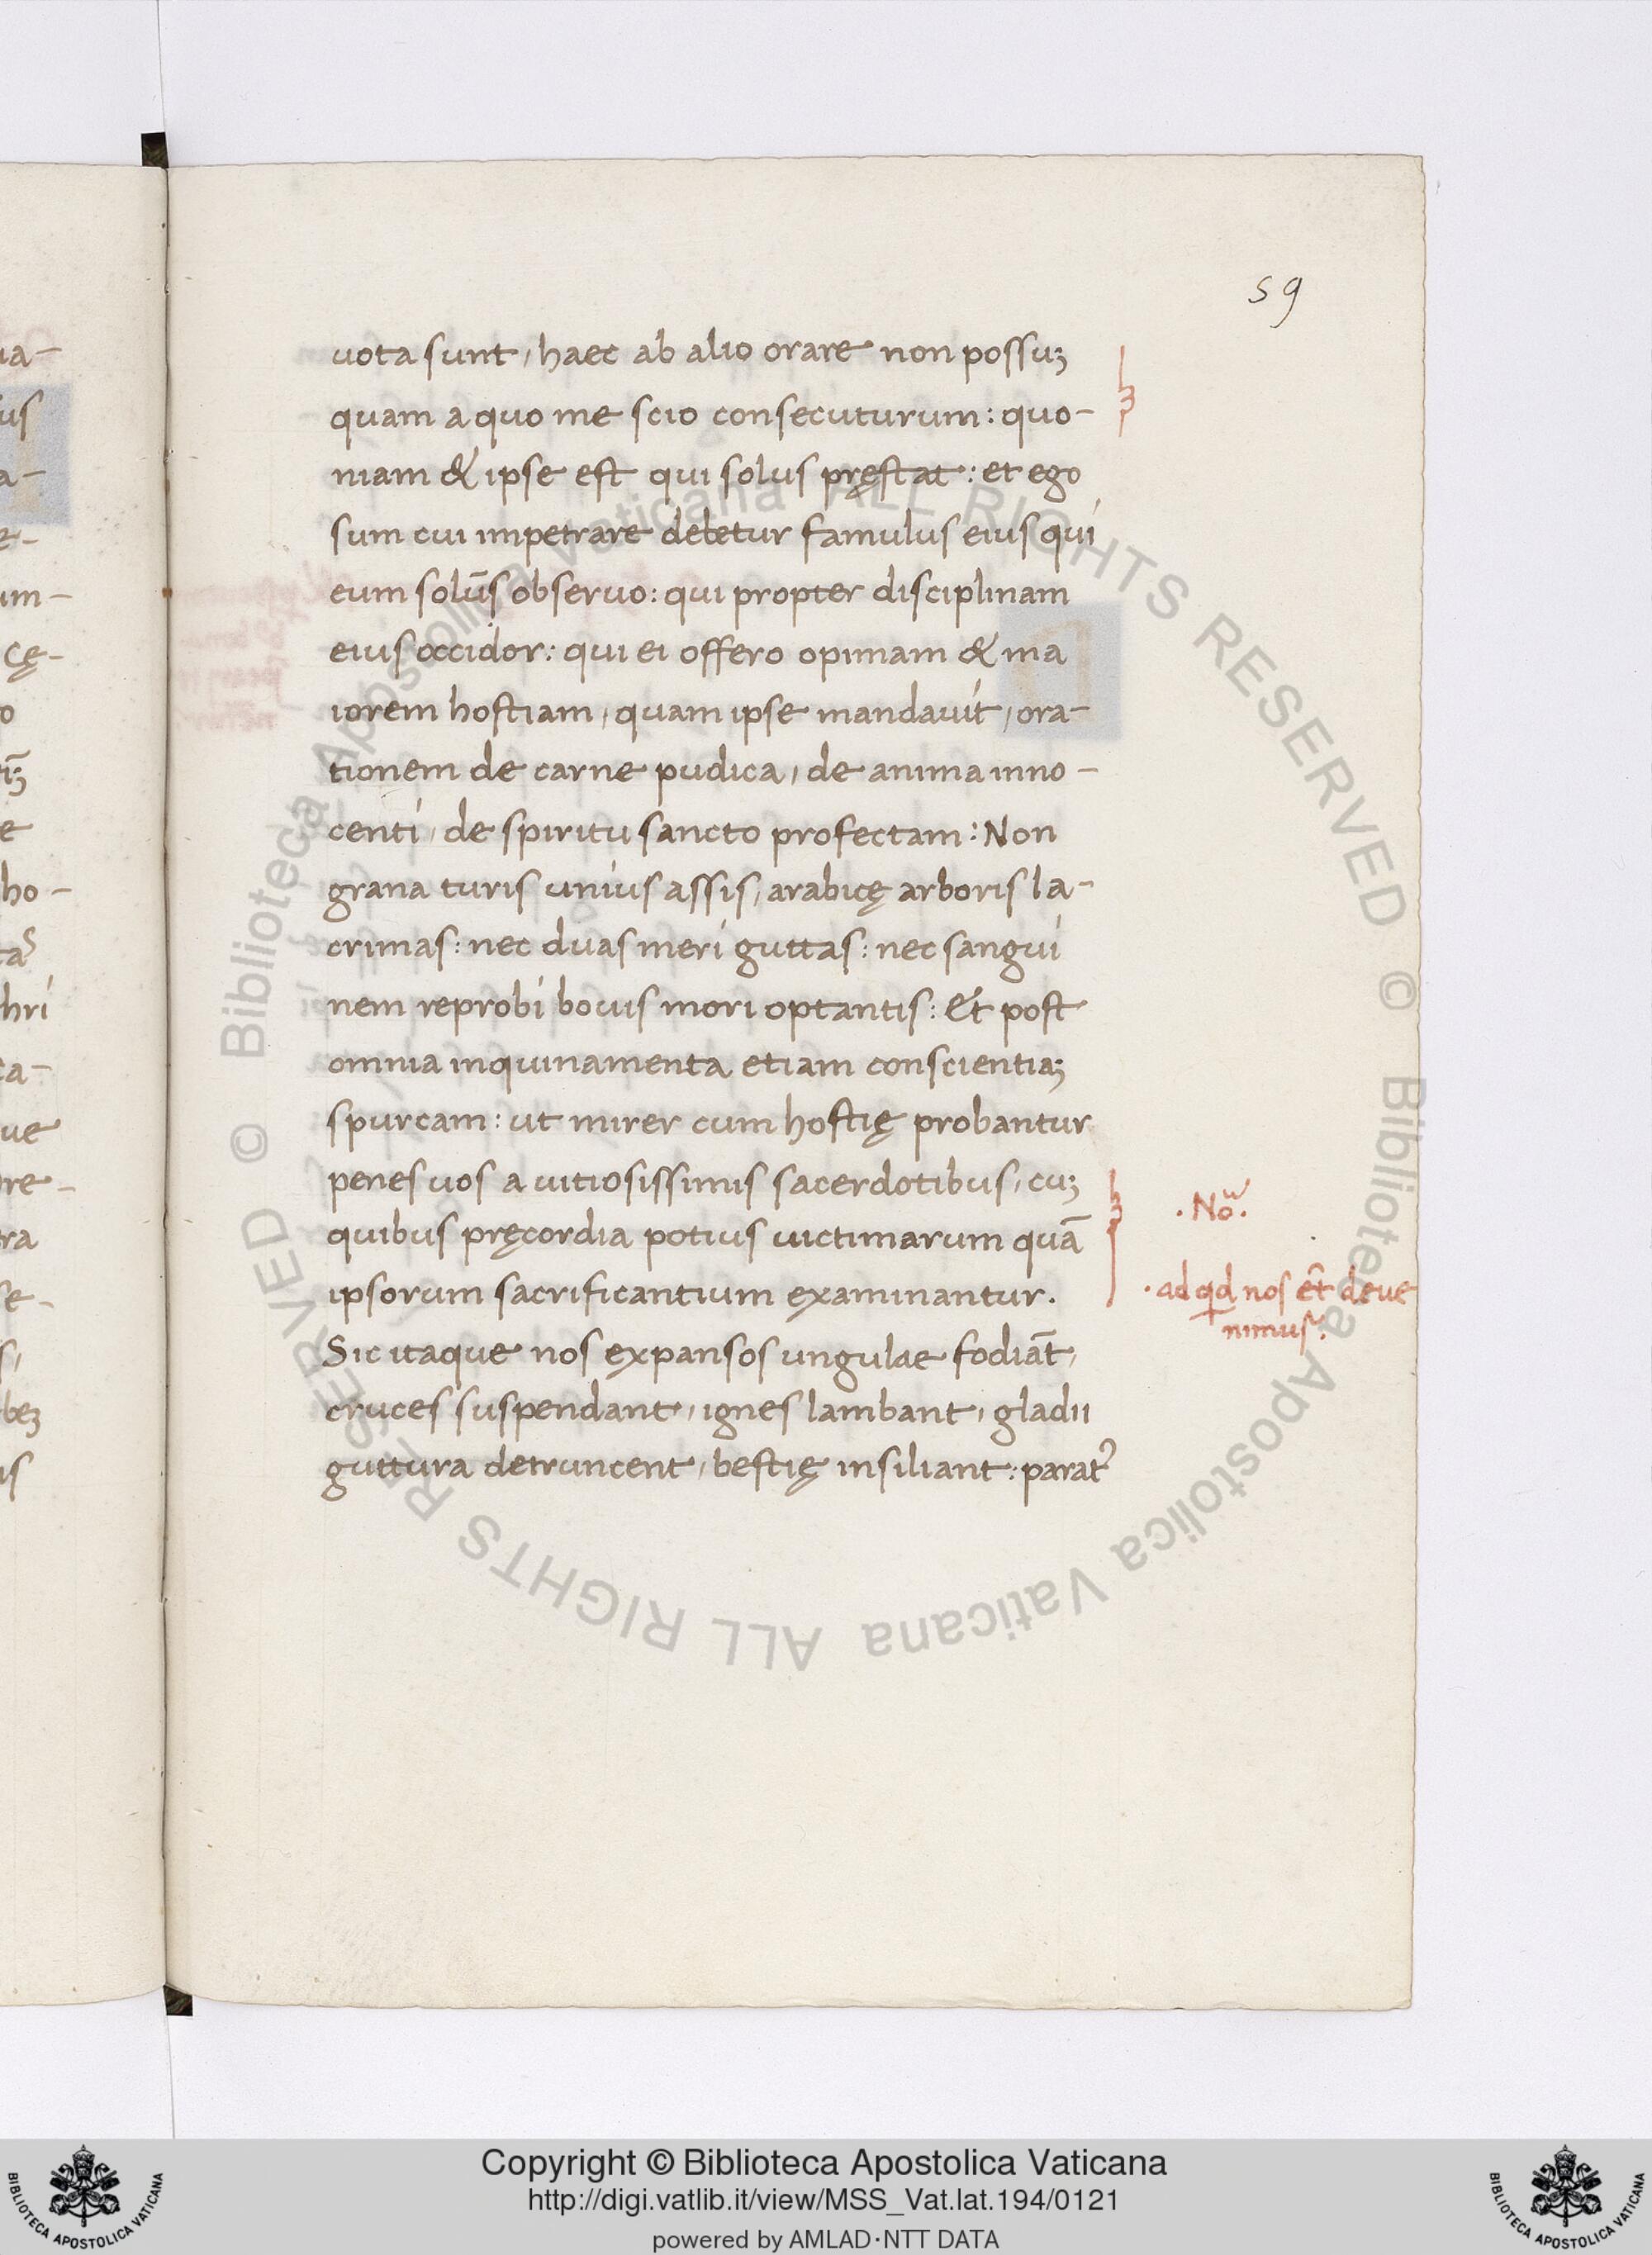 59
uota sunt, haec ab alio orare non possuꝫ
quam a quo me scio consecuturum: quo-
niam & ipse est qui solus pręstat: et ego
sum cui impetrare debetur famulus eius qui
eum solūs obseruo: qui propter disciplinam
eius occidor: qui ei offero opimam & ma
iorem hostiam, quam ipse mandauit, ora-
tionem de carne pudica, de anima inno-
centi, de spiritu sancto profectam: Non
grana turis unius assis, arabicę arboris la-
crimas: nec duas meri guttas: nec sangui
nem reprobi bouis mori optantis: Et post
omnia inquinamenta etiam conscientiaꝫ
spurcam: ut mirer cum hostię probantur
penes uos a uitiosissimis sacerdotibus, cuꝫ
quibus pręcordia potius uictimarum quā
ipsorum sacrificantium examinantur.
Sic itaque nos expansos ungulae fodiāt,
cruces suspendant, ignes lambant, gladii
guttura detruncent, bestię insiliant: parat᷑
.No.
.ad qd nos et̄ deue
nimus.
Copyright © Biblioteca Apostolica Vaticana
http://digi.vatlib.it/view/MSS_Vat.lat.194/0121
powered by AMLAD·NTT DATA
BIBLIOTECA APOSTOLICA VATICANA
BIBLIOTECA APOSTOLICA VATICANA
© Biblioteca Apostolica Vaticana ALL RIGHTS RESERVED
© Biblioteca Apostolica Vaticana ALL RIGHTS RESERVED